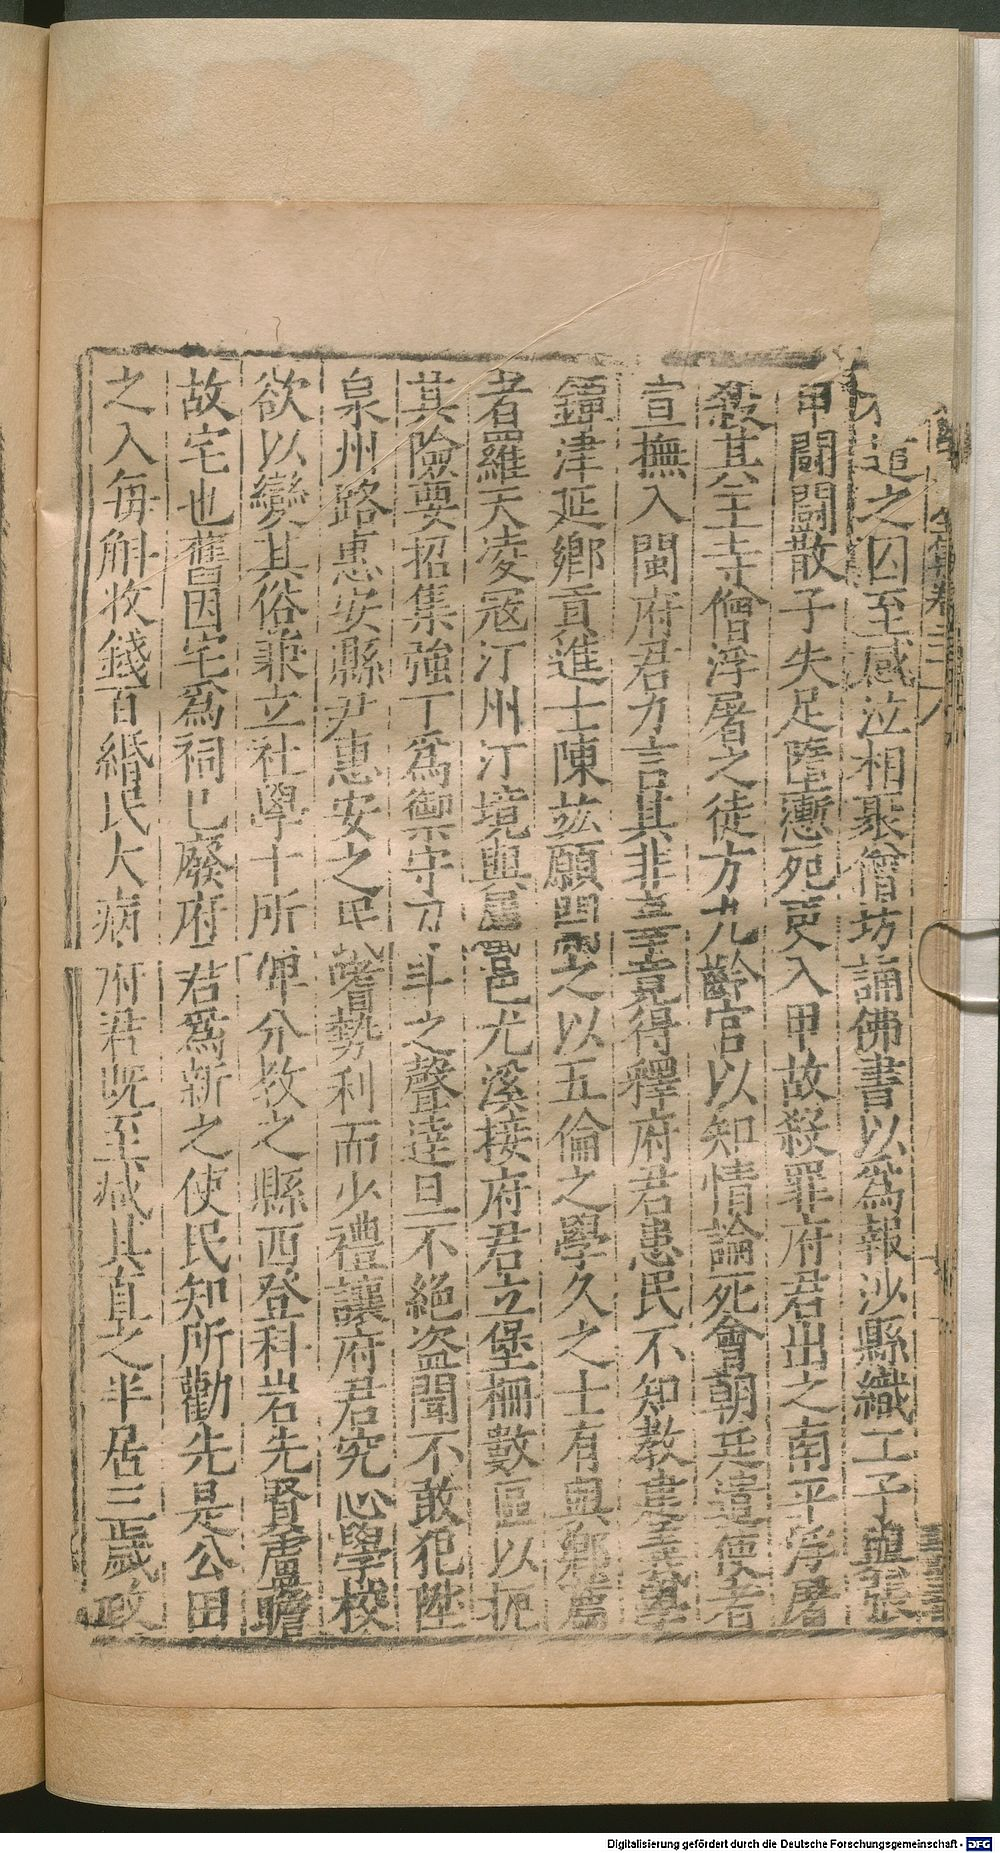 追之囚至感泣相聚僧坊誦佛書以爲報沙縣織工子與張
甲鬬鬬散子失足墮壍死吏入甲故殺罪府君出之南平浮屠
殺其主寺僧浮屠之徒方九齡官以知情論死會朝廷遣使者
宣撫入閩府君力言其非辜竟得釋府君患民不知教建義學
鐔津延鄉貢進士陳茲願開之以五倫之學久之士有與鄉薦
者羅天凌寇汀州汀境與屬邑尤溪接府君立堡柵數區以扼
其險要招集強丁爲禦守刁斗之聲達旦不絕盜聞不敢犯陞
泉州路惠安縣尹惠安之民嗜勢利而少禮讓府君究心學校
欲以變其俗兼立社學十所俾分教之縣西登科岩先賢盧瞻
故宅也舊因宅爲祠已廢府君爲新之使民知所勸先是公田
之入每斛收錢百緡民大病府君既至减其直之半居三歲政
Digitalisierung gefördert durch die Deutsche Forschungsgemeinschaft - DFG